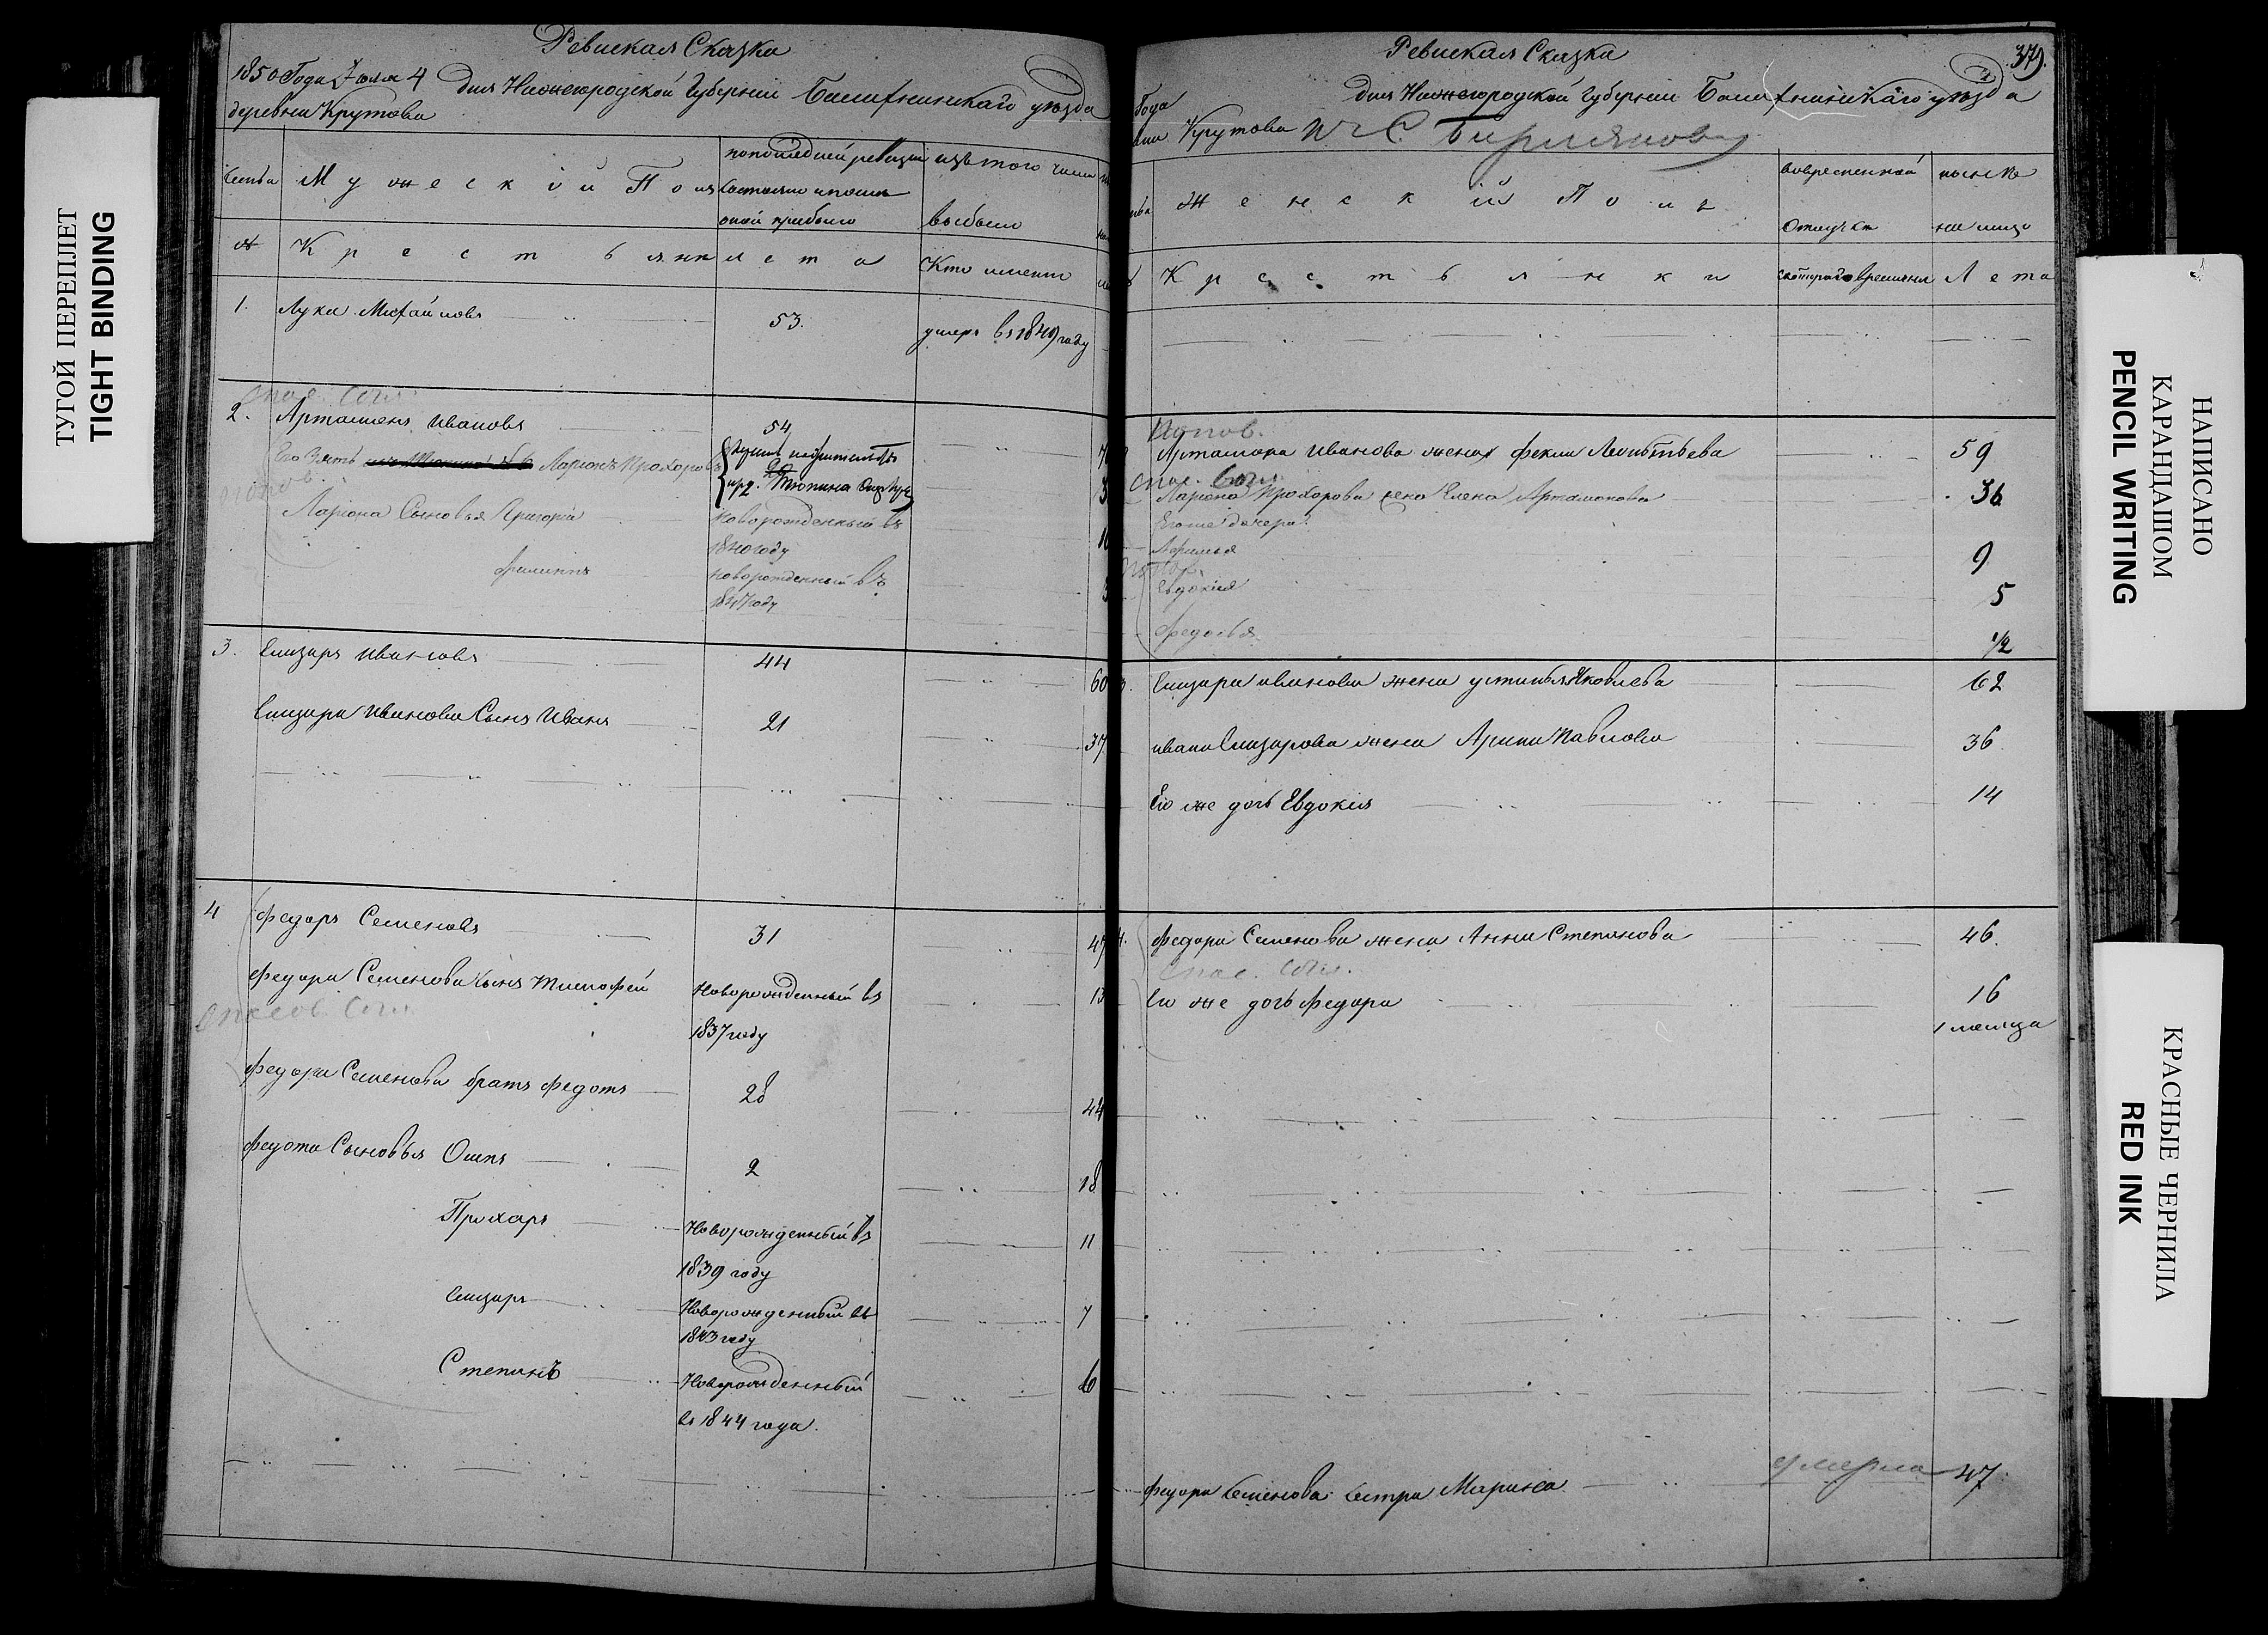 ТУГОЙ ПЕРЕПЛЕТ
TIGHT BINDING
Ревиская Сказка
1850 Года Июля 4 Для Нижегородской Губернии Балахнинскаго уезда
деревни Крутова
Семьи
Мужеский Пол
по последней ревизии
состояло и после
оной прибыло
изъ того числа
выбыло
Крестьяне
лета
Кто именно
1. Лука Михайловъ 53. умеръ въ 1849 году
2. Артамонъ Ивановъ 54
Его Зять Ларионъ Прохоровъ
Лариона Сыновья Григорій новорожденный въ
1840 году
Филиппъ новорожденный въ
1847 году
3. Елизаръ Ивановъ 44 60
Елизара Иванова Сынъ Иванъ 21 37
4 Федоръ Семеновъ 31 47
Федора Семенова Сынъ Тимофей Новорожденный въ 13
1837 году
Федора Семенова братъ Федотъ 28 44
Федота Сыновья Осипъ 2 18
Прохоръ Новорожденный въ 11
1839 году
Елизаръ Новорожденный въ 7
1843 году
Степанъ Новорожденный 6
въ 1844 года.
Ревиская Сказка
379.
Года Для Нижегородской Губернии Балахнинскаго уезда
Крутова
Женский Полъ
во временной
отлучке
ныне
на лицо
Крестьянки
с котораго времени
Лета
Попов.
Артамона Иванова жена Фекла Леонтьева 59
Спас. Согл.
Лариона Прохорова жена Елена Артамонова 36
Его же дочери
Афимья 9
Евдокия 5
Федосья 1/2
3. Елизара Иванова жена Устинья Яковлева 62
Ивана Елизарова жена Арина Павлова 36.
Его же дочь Евдокия 14
4. Федора Семенова жена Анна Степанова 46.
Спас. Согл.
Его же дочь Федора 16
1 месяца
Федора Семенова Сестра Марина умерла 47.
НАПИСАНО
КАРАНДАШОМ
PENCIL WRITING
КРАСНЫЕ ЧЕРНИЛА
RED INK